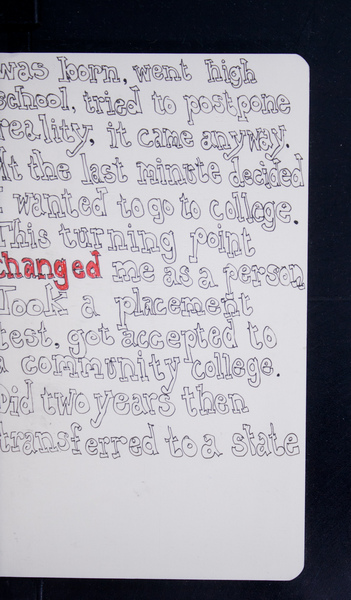 was born, went high
school, tried to postpone
reality, it came anyway.
At the last minute decided
I wanted to go to college.
This turning point
changed me as a person
Took a placement
test, got accepted to
a community college.
Did two years then
transferred to a state